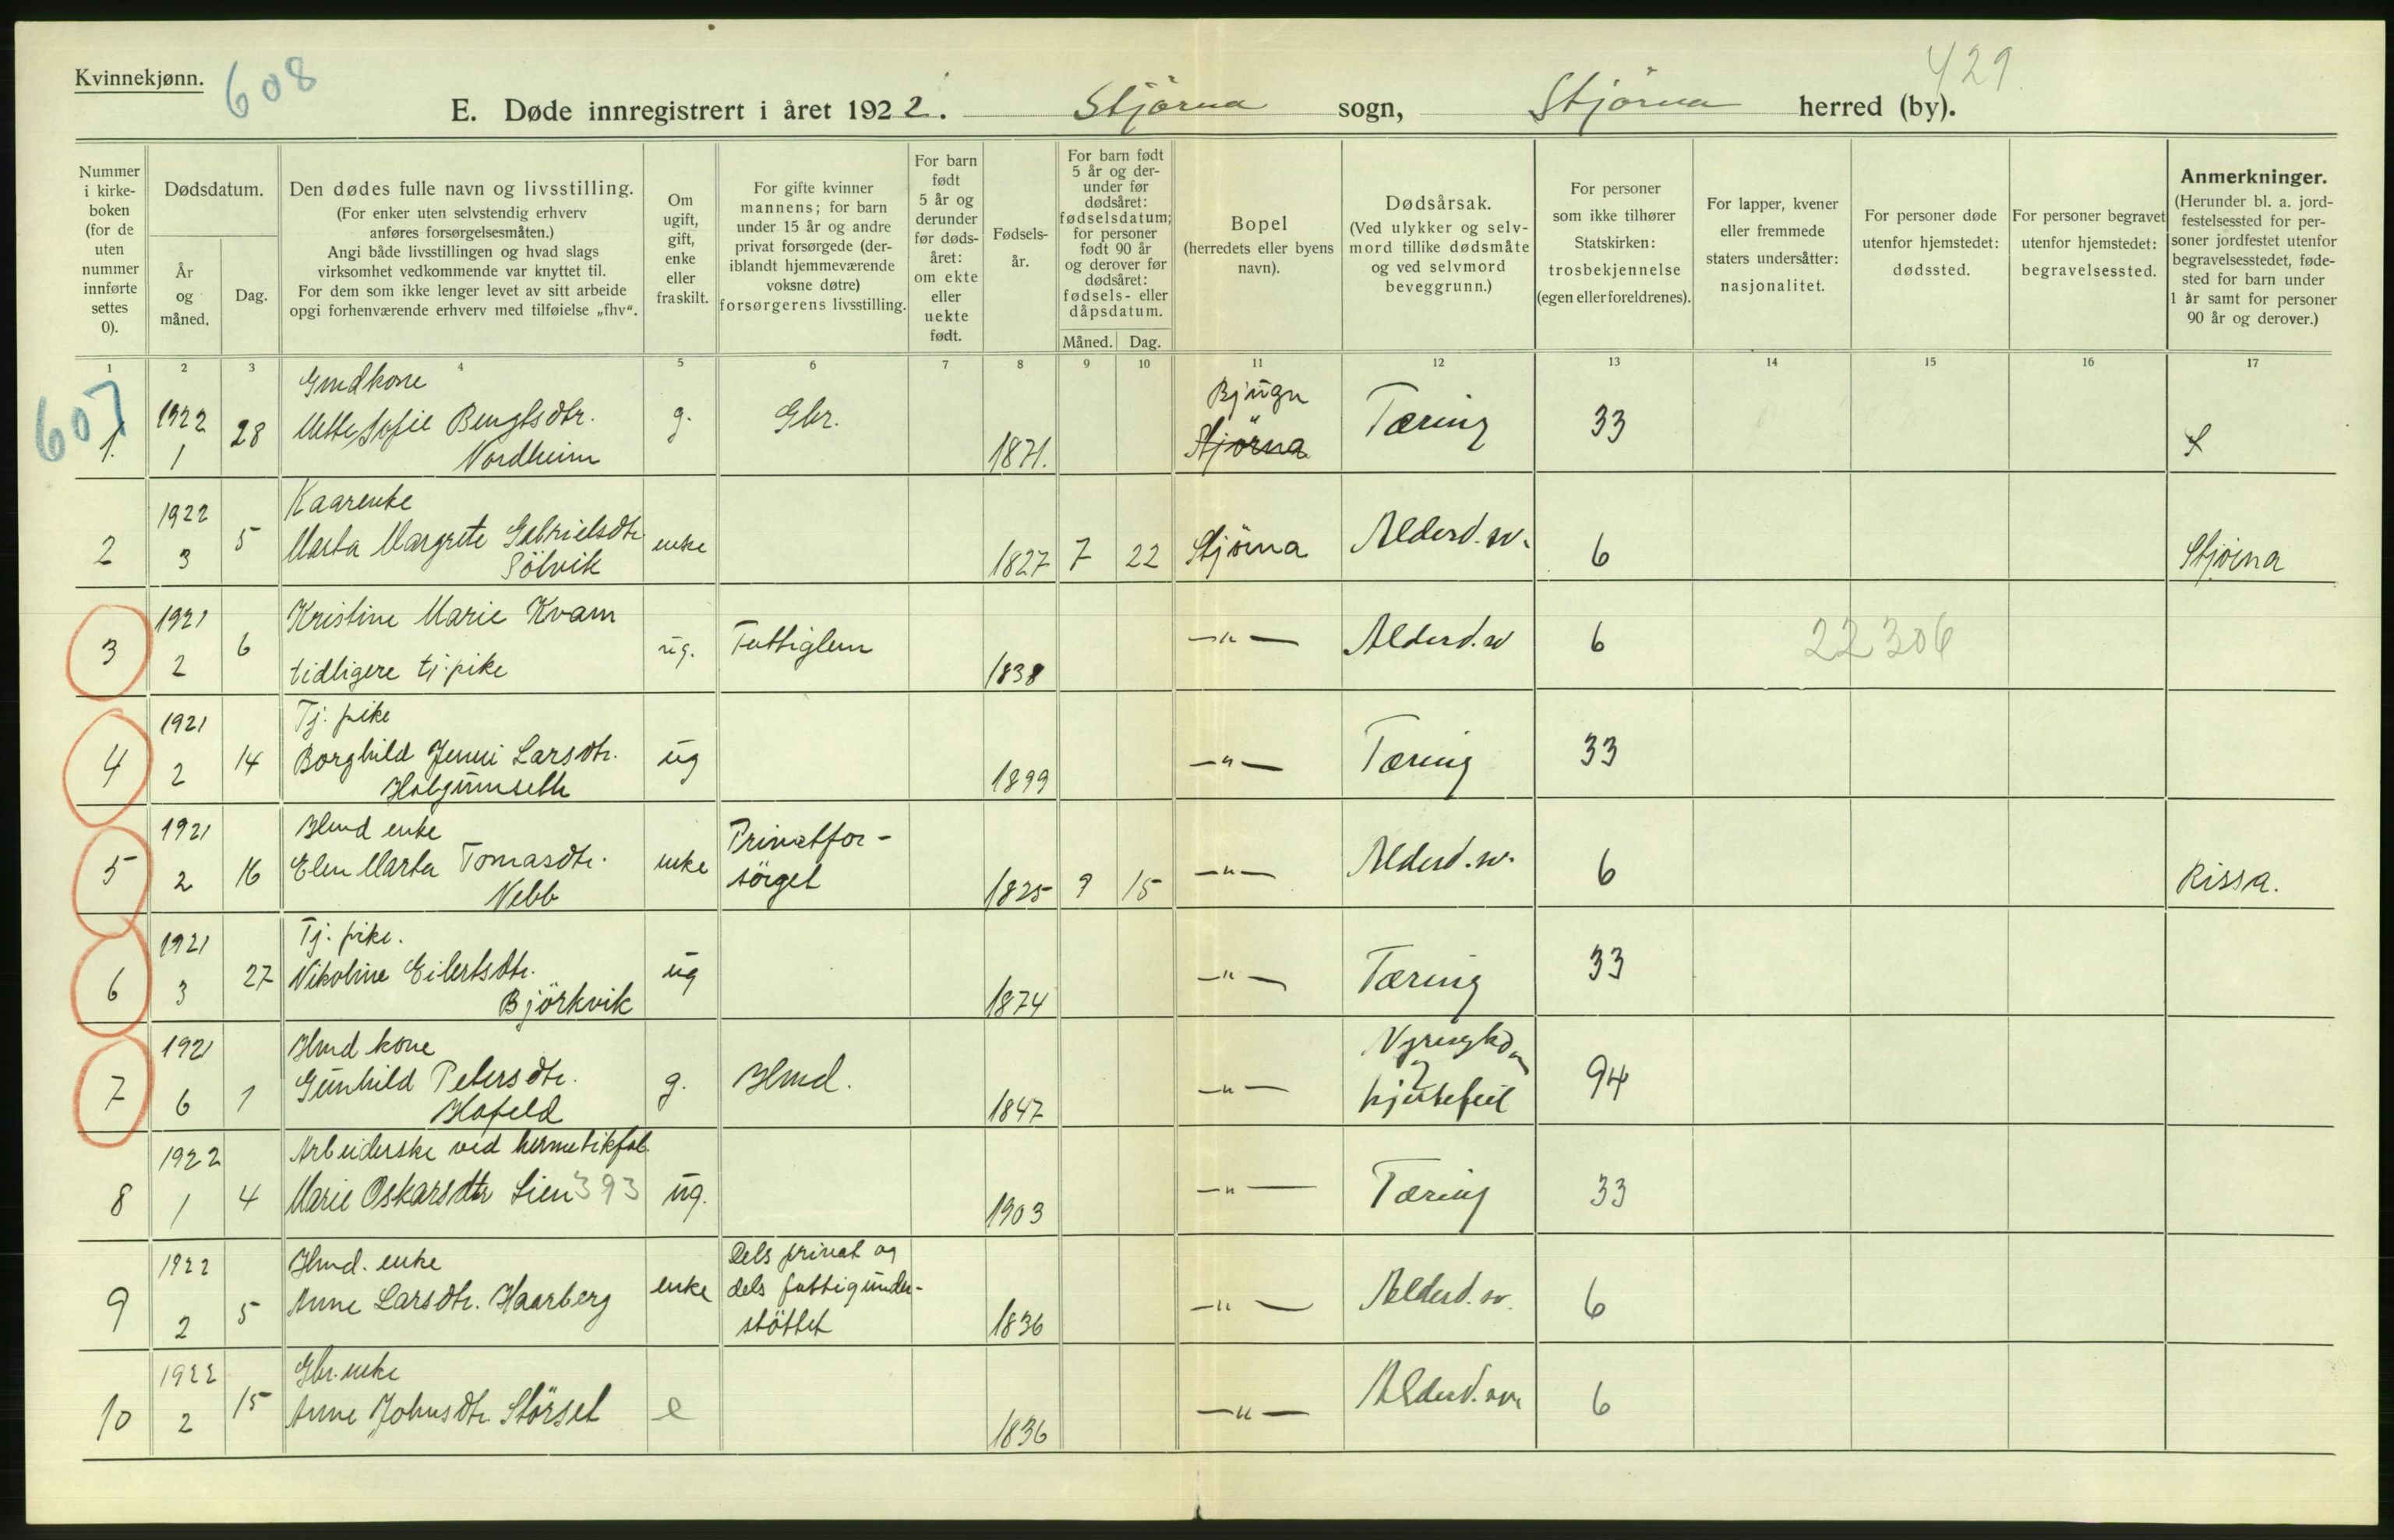 Kvinnekjønn.
608
429
E. Døde innregistrert i året 1922. Stjörna sogn, Stjörna herred (by).
Nummer i kirke- boken (for de uten nummer innførte settes 0).
Dødsdatum.
År og måned.
Dag.
Den dødes fulle navn og livsstilling.
(For enker uten selvstendig erhverv anføres forsørgelsesmåten.)
Angi både livsstillingen og hvad slags virksomhet vedkommende var knyttet til.
For dem som ikke lenger levet av sitt arbeide opgi forhenværende erhverv med tilføielse „fhv“.
Om ugift, gift, enke eller fraskilt.
For gifte kvinner mannens; for barn under 15 år og andre privat forsørgede (der- iblandt hjemmeværende voksne døtre) forsørgerens livsstilling.
For barn født 5 år og derunder før døds- året: om ekte eller uekte født.
Fødsels- år.
For barn født 5 år og der- under før dødsåret: fødselsdatum; for personer født 90 år og derover før dødsåret: fødsels- eller dåpsdatum.
Måned. Dag.
Bopel
(herredets eller byens navn).
Dødsårsak.
(Ved ulykker og selv- mord tillike dødsmåte og ved selvmord beveggrunn.)
For personer som ikke tilhører Statskirken: trosbekjennelse (egen eller foreldrenes).
For lapper, kvener eller fremmede staters undersåtter: nasjonalitet.
For personer døde utenfor hjemstedet: dødssted.
For personer begravet utenfor hjemstedet: begravelsessted.
Anmerkninger.
(Herunder bl. a. jord- festelsessted for per- soner jordfestet utenfor begravelsesstedet, føde- sted for barn under 1 år samt for personer 90 år og derover.)
1 2 3 4 5 6 7 8 9 10 11 12 13 14 15 16 17
607
Gmdkone Bjugn
1. 1922 1 28 Mette Sofie Bengtsdtr. Nordheim g. Gbr. 1871. Stjörna Tæring 33
Kaarenke
2 1922 3 5 Marta Margrete Gabrielsdtr Sölvik enke 1827 7 22 Stjörna Alderd.sv. 6 Stjörna
3 1921 2 6 Kristine Marie Kvam ug. Fattiglem 1838 —"— Alderd.sv 6 22306
tidligere tj.pike
Tj. pike
4 1921 2 14 Borghild Jenni Larsdtr. ug 1899 —"— Tæring 33
Hmd enke
5 1921 2 16 Elen Marta Tomasdtr. Nebb enke Privatfor- sörget 1825 9 15 —"— Alderd.sv. 6 Rissa.
Tj. pike.
6 1921 3 27 Nikoline Eilertsdtr. Björkvik ug 1874 —"— Tæring 33
Hmd kone
7 1921 6 1 Gunhild Petersdtr. Hafeld g. Hmd. 1847 —"— hjertefeil 94
Arbeiderske ved hermetikfab.
8 1922 1 4 Marie Oskarsdtr Lien 393 ug. 1903 —"— Tæring 33
Hmd. enke
9 1922 2 5 Anne Larsdtr. Haarberg enke Dels privat og dels fattigunder- støttet 1836 —"— Alderd.sv. 6
Gbr. enke
10 1922 2 15 Anne Johnsdtr. Störset e 1836 —"— Alderd.sv. 6